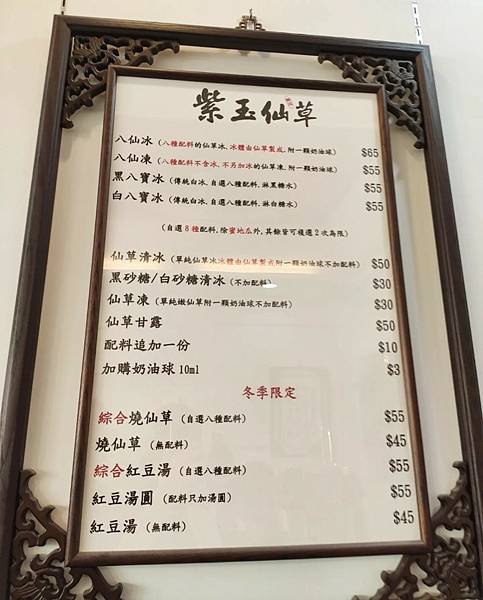 紫玉仙草
八仙冰 (八種配料的仙草冰、冰體由仙草製成,附一顆奶油球) $65
八仙凍 (八種配料不含冰、不另加冰的仙草凍,附一顆奶油球) $55
黑八寶冰 (傳統白冰、自選八種配料,淋黑糖水) $55
白八寶冰 (傳統白冰、自選八種配料,淋白糖水) $55
(自選8種配料,除蜜地瓜外,其餘皆可複選2次為限)
仙草清冰 (單純仙草冰冰體由仙草製成附一顆奶油球不加配料) $50
黑砂糖/白砂糖清冰 (不加配料) $30
仙草凍 (單純嫩仙草附一顆奶油球不加配料) $30
仙草甘露 $50
配料追加一份 $10
加購奶油球10ml $3
冬季限定
綜合燒仙草 (自選八種配料) $55
燒仙草 (無配料) $45
綜合紅豆湯 (自選八種配料) $55
紅豆湯圓 (配料只加湯圓) $55
紅豆湯 (無配料) $45